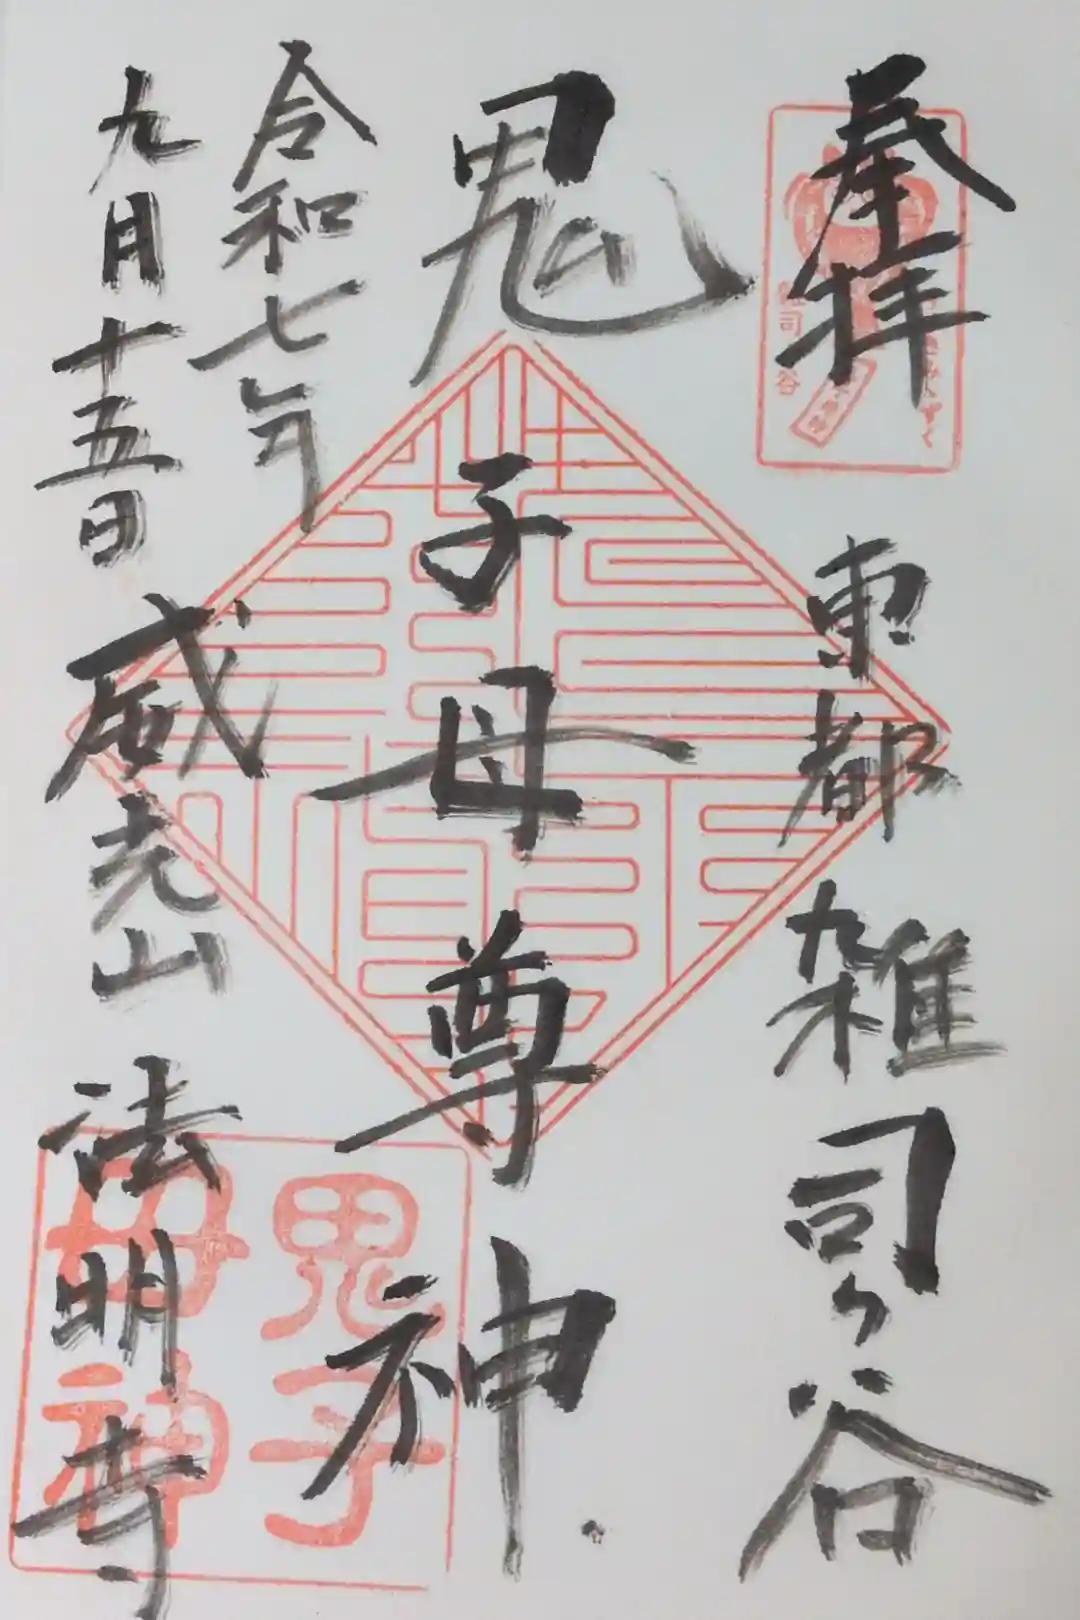 奉拝
東都 雑司ヶ谷
鬼子母尊神
令和七年
九月十五日
威光山 法明寺
鬼子
母神